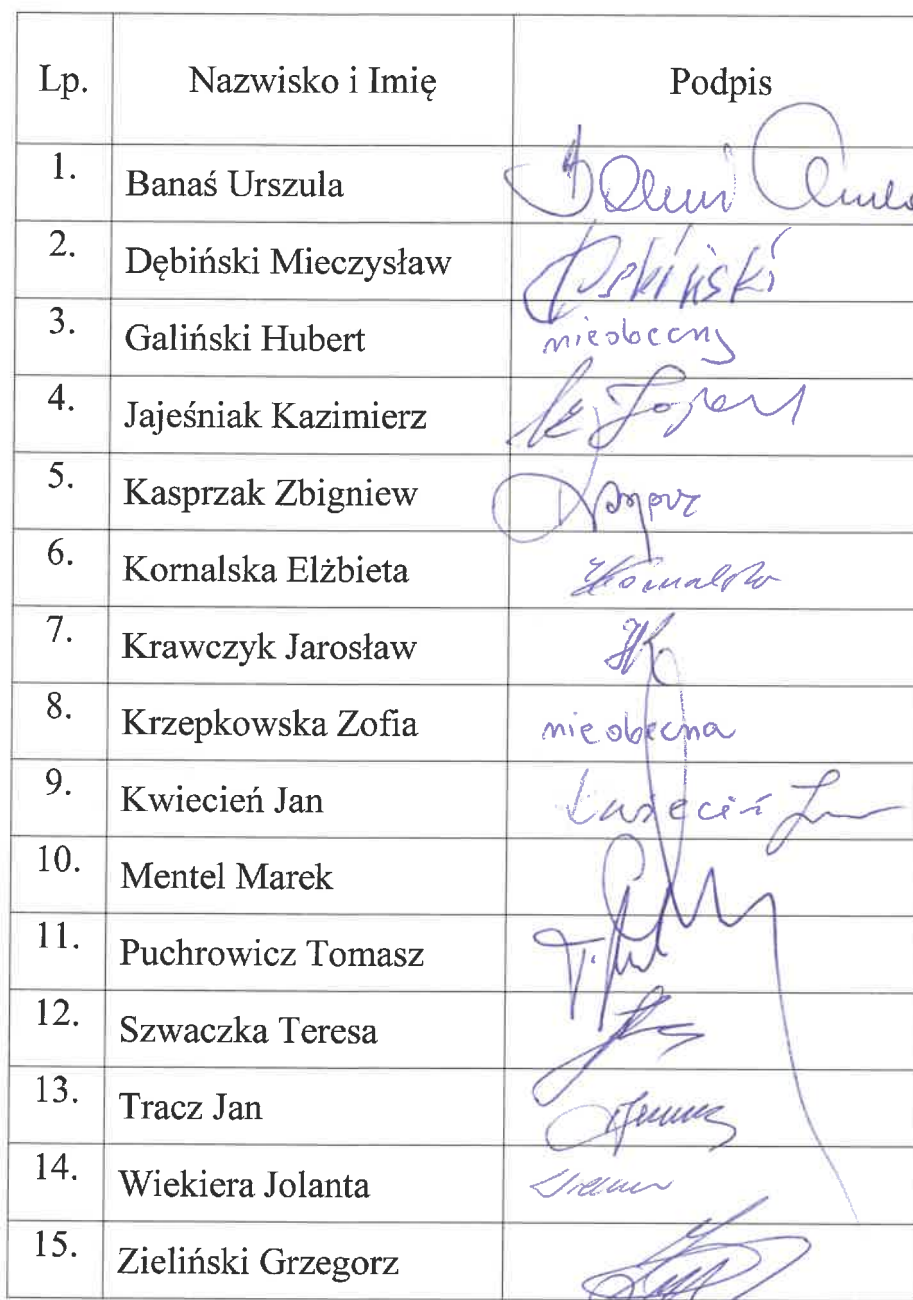 Lp. Nazwisko i Imię Podpis
1. Banaś Urszula
2. Dębiński Mieczysław Dębiński
3. Galiński Hubert nieobecny
4. Jajeśniak Kazimierz
5. Kasprzak Zbigniew
6. Kornalska Elżbieta Kornalska
7. Krawczyk Jarosław JK
8. Krzepkowska Zofia nieobecna
9. Kwiecień Jan Kwiecień Jan
10. Mentel Marek
11. Puchrowicz Tomasz
12. Szwaczka Teresa
13. Tracz Jan
14. Wiekiera Jolanta
15. Zieliński Grzegorz